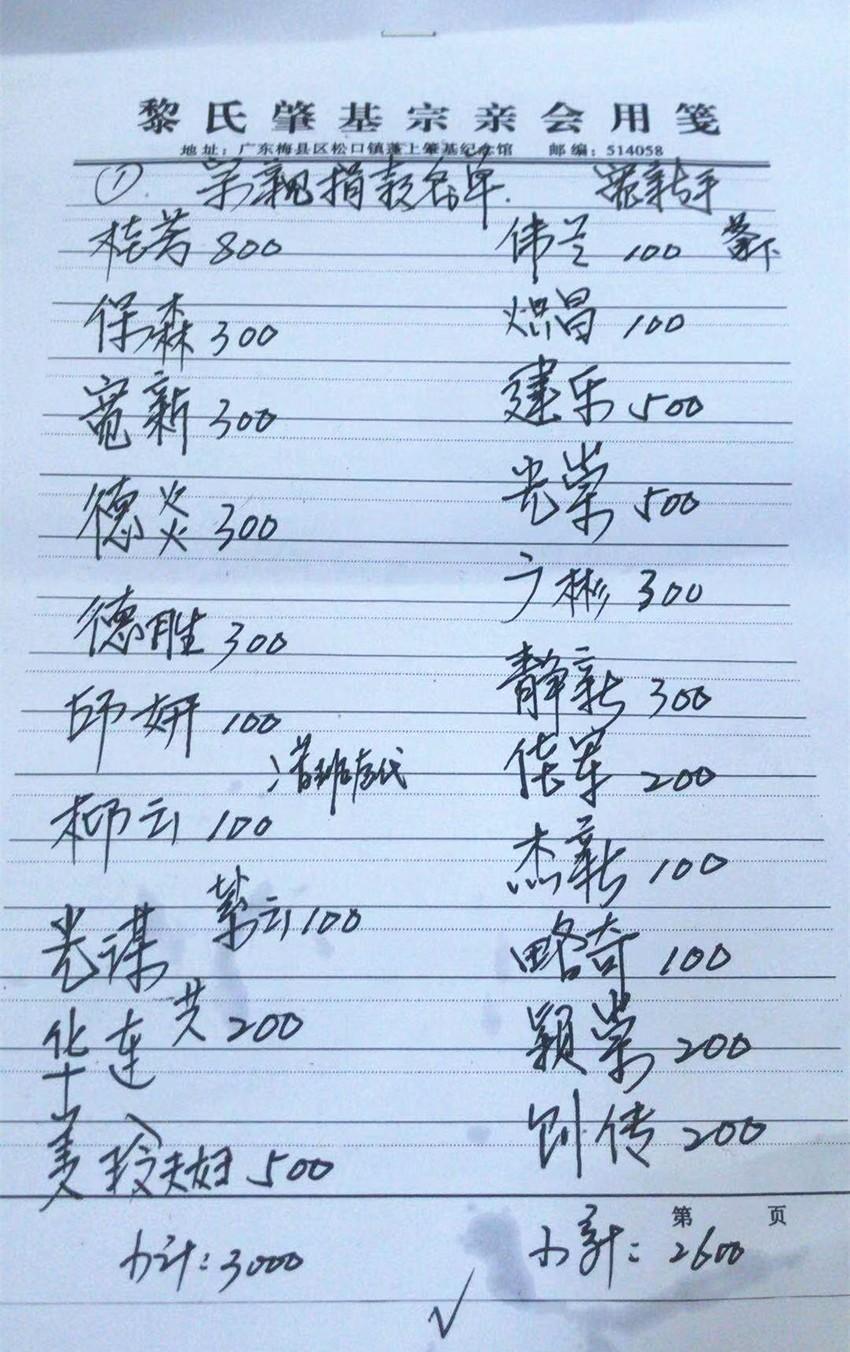 黎氏肇基宗亲会用笺
地址：广东梅县区松口镇蓬上肇基纪念馆 邮编：514058
① 宗親捐款名单. 宽新经手
桂芳 800
保森 300
宽新 300
德炎 300
德胜 300
妍 100
柳云 100
光谋
紫云 100
华连
共 200
美玲夫妇 500
小计：3000
伟兰 100
炽昌 100
建乐 500
光荣 500
广彬 300
静新 300
佐军 200
杰新 100
略奇 100
颖荣 200
创传 200
第 页
小計：2600
√